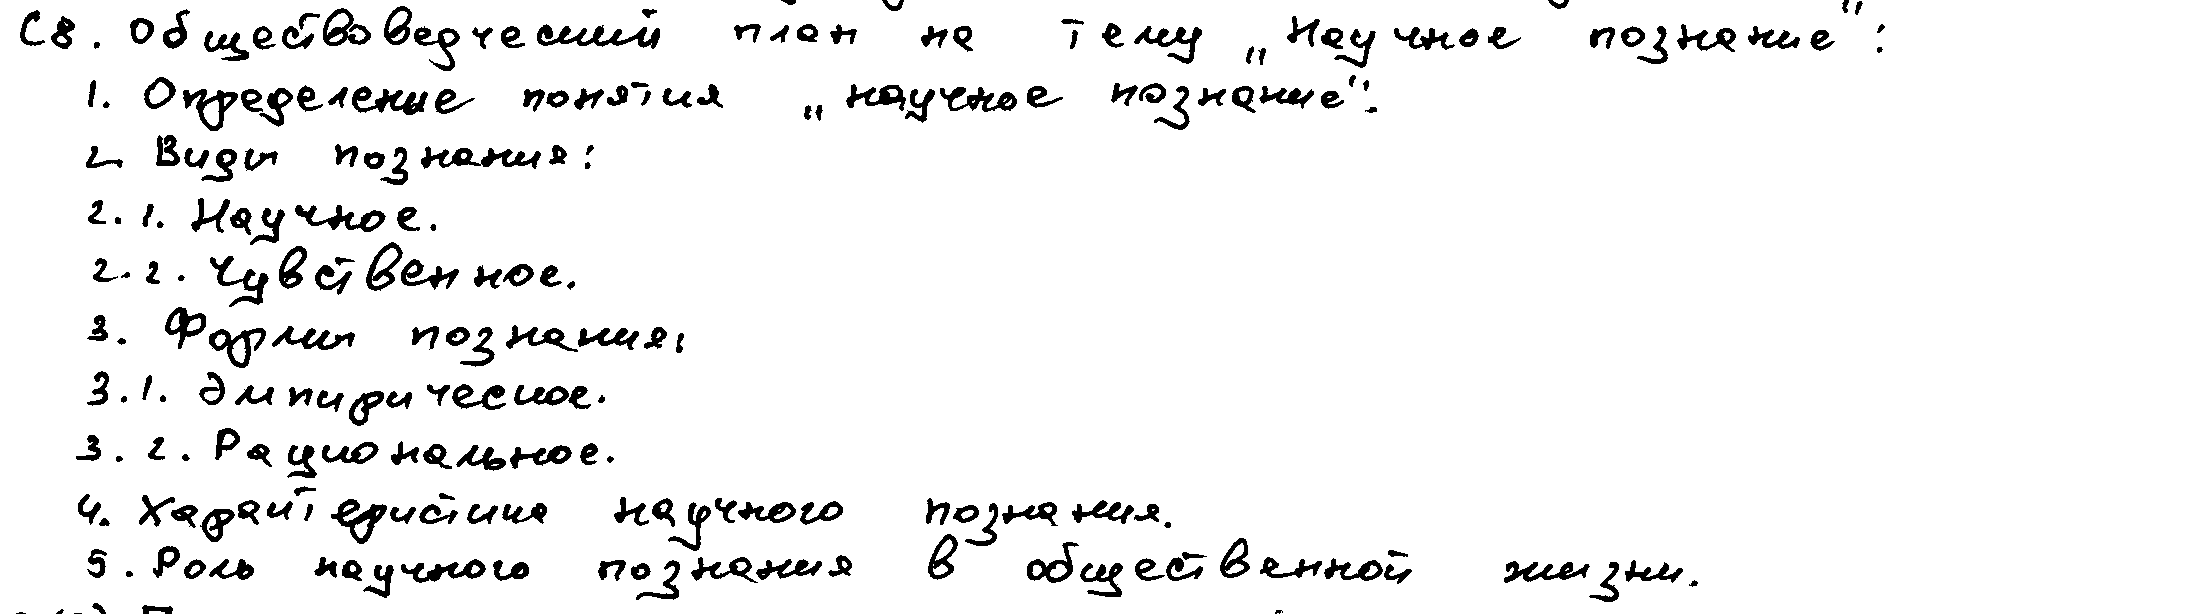 С8. Обществоведческий план на тему „Научное познание":
1. Определение понятия „научное познание".
2. Виды познания:
2.1. Научное.
2.2. Чувственное.
3. Формы познания:
3.1. Эмпирическое.
3.2. Рациональное.
4. Характеристика научного познания.
5. Роль научного познания в общественной жизни.